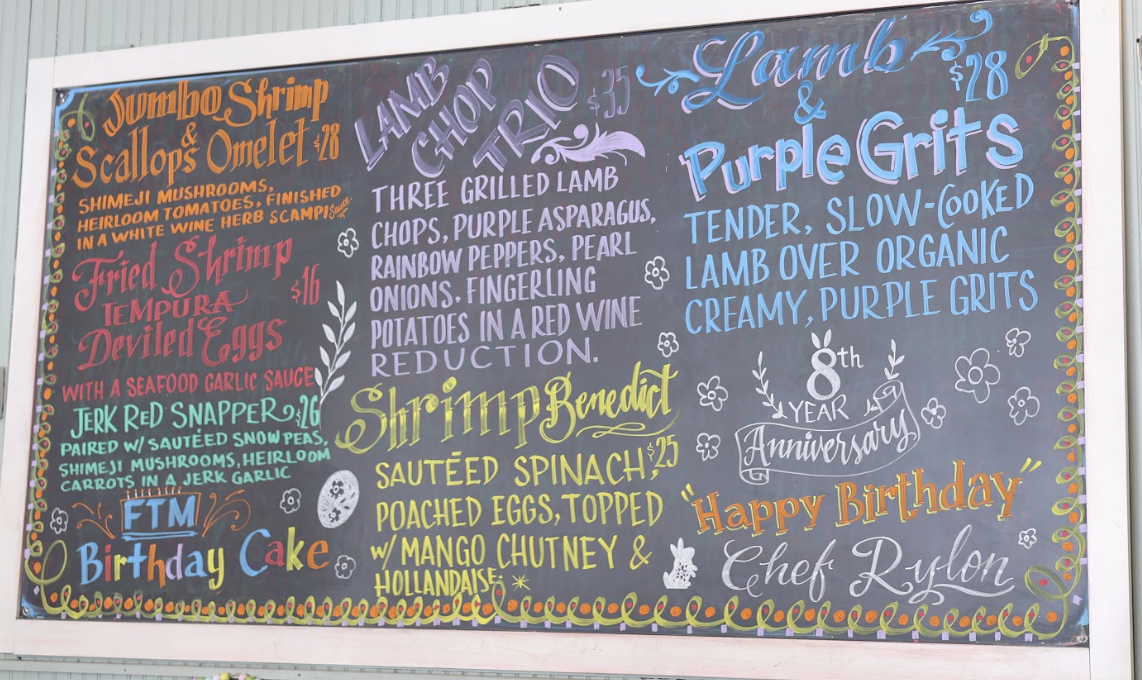 Jumbo Shrimp
&
Scallops Omelet $28
SHIMEJI MUSHROOMS,
HEIRLOOM TOMATOES, FINISHED
IN A WHITE WINE HERB SCAMPI Sauce.
Fried Shrimp
$16
TEMPURA
Deviled Eggs
WITH A SEAFOOD GARLIC SAUCE
JERK RED SNAPPER $26
PAIRED W/ SAUTÉED SNOW PEAS,
SHIMEJI MUSHROOMS, HEIRLOOM
CARROTS IN A JERK GARLIC
FTM
Birthday Cake
LAMB
CHOP
TRIO $35
THREE GRILLED LAMB
CHOPS, PURPLE ASPARAGUS,
RAINBOW PEPPERS, PEARL
ONIONS, FINGERLING
POTATOES IN A RED WINE
REDUCTION.
Shrimp Benedict
$25
SAUTÉED SPINACH,
POACHED EGGS, TOPPED
W/ MANGO CHUTNEY &
HOLLANDAISE.
Lamb $28
&
Purple Grits
TENDER, SLOW-COOKED
LAMB OVER ORGANIC
CREAMY, PURPLE GRITS
8th
YEAR
Anniversary
"Happy Birthday"
Chef Rylon